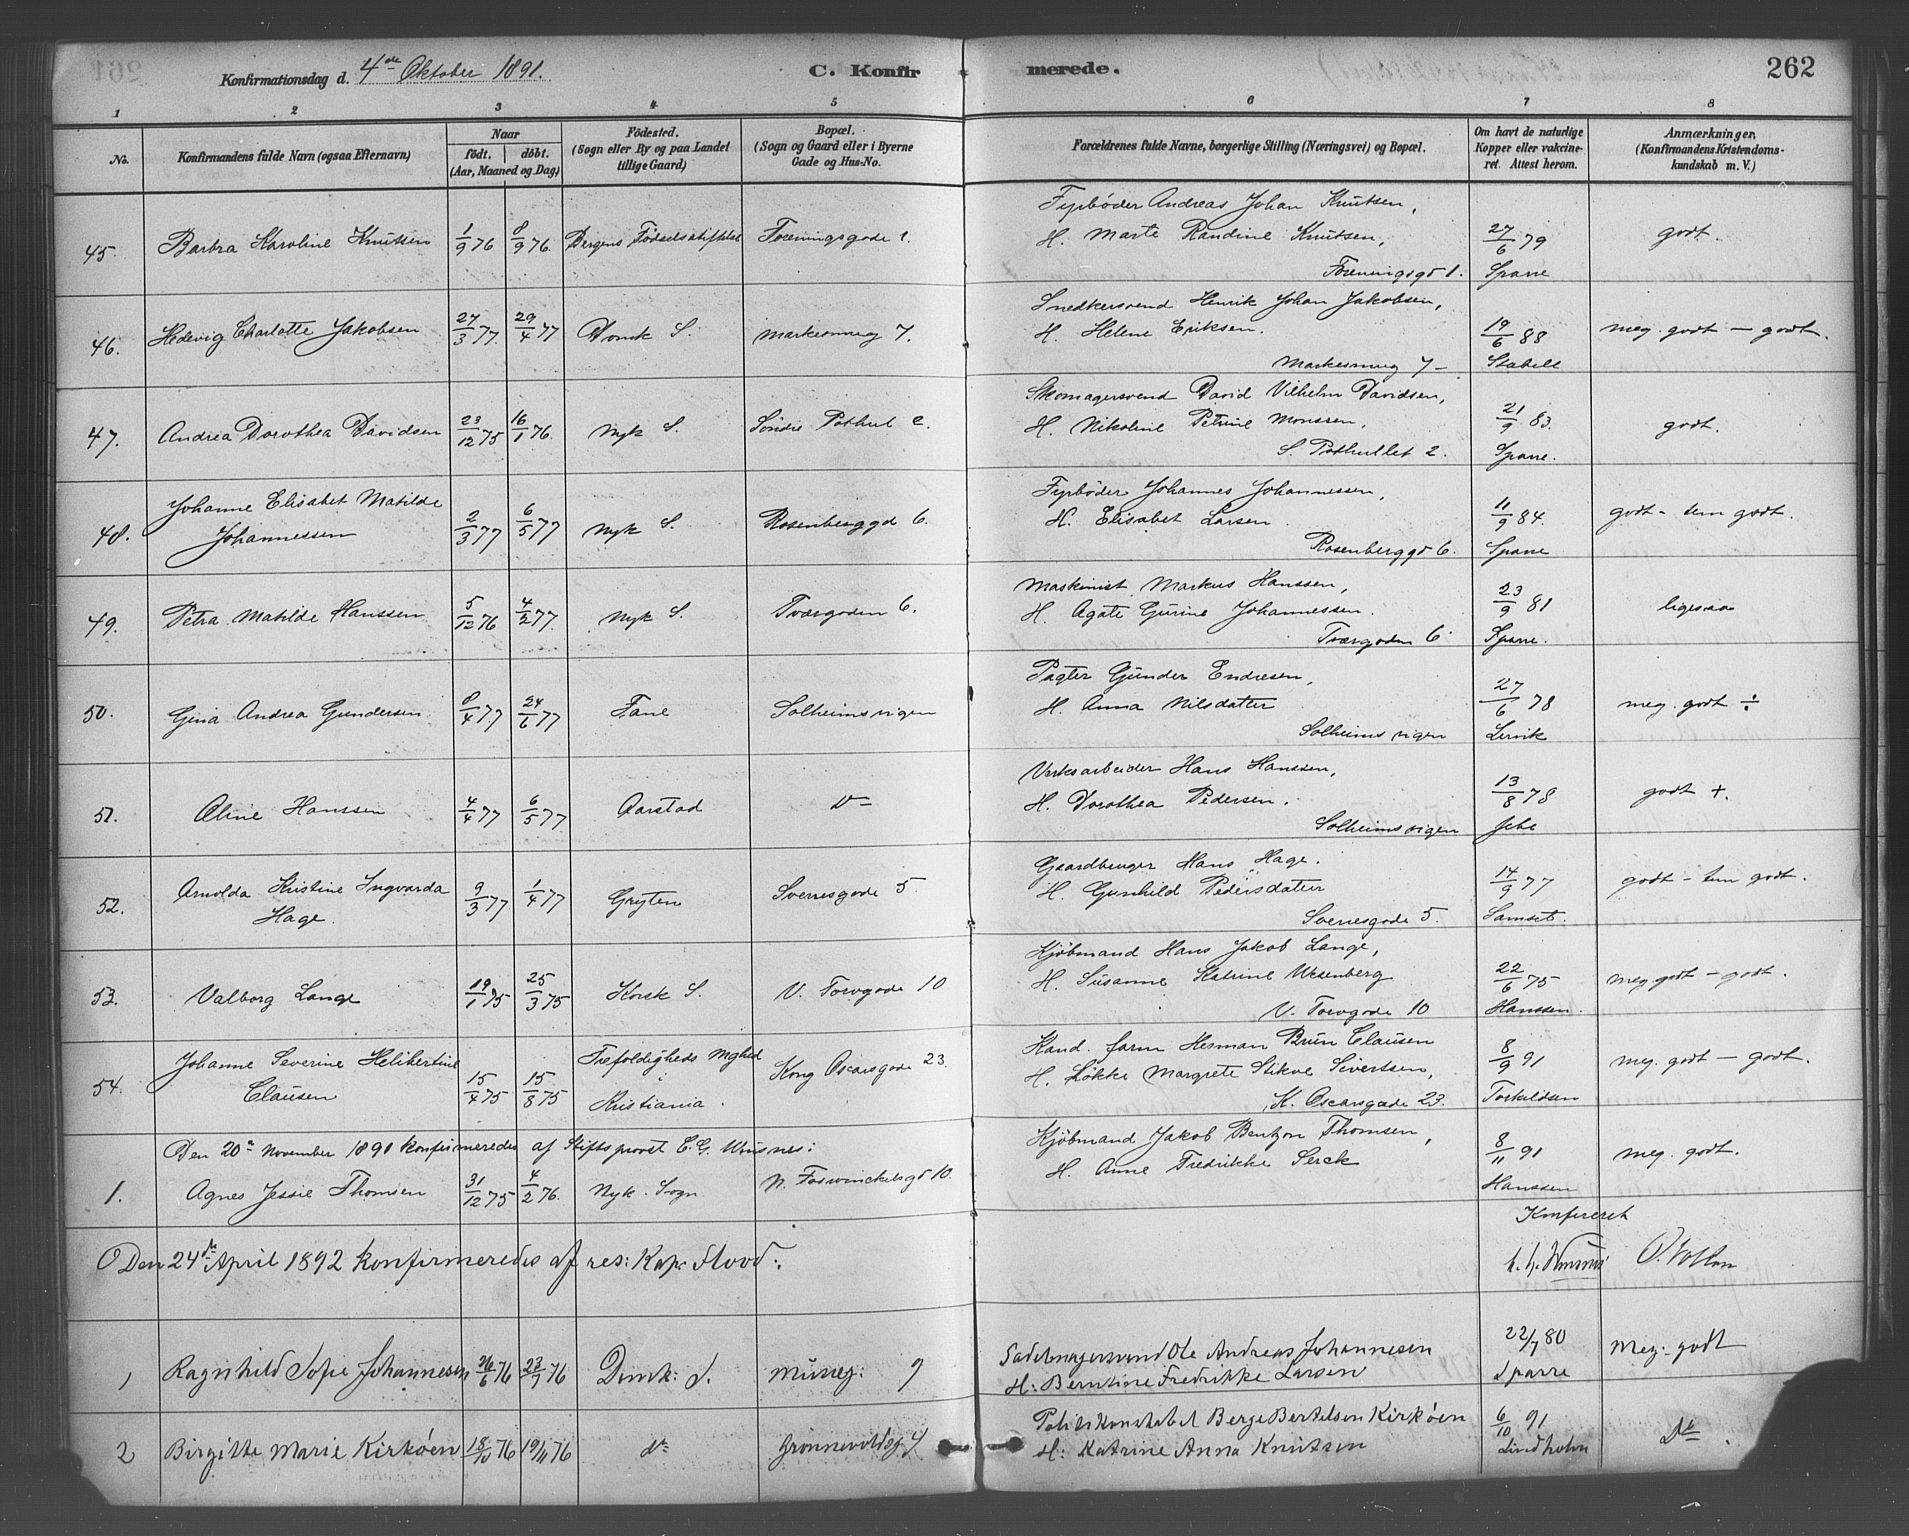 Konfirmationsdag d. 4de Oktober 1891. C. Konfirmerede. 262
1 2 3 4 5 6 7 8
No. Konfirmandens fulde Navn (ogsaa Efternavn) Naar født. døbt. (Aar, Maaned og Dag) Fødested. (Sogn eller By og paa Landet tillige Gaard) Bopæl. (Sogn og Gaard eller i Byerne Gade og Hus-No. Forældrenes fulde Navne, borgerlige Stilling (Næringsvei) og Bopæl. Om havt de naturlige Kopper eller vakcineret. Attest herom. Anmærkninger. (Konfirmandens Kristendomskundskab m. V.)
45. Barbra Karoline Knutsen 1/9 76 8/9 76 Bergens Fødselsstiftelse Foreningsgade 1. Fyrbøder Andreas Johan Knutsen, H. Marte Randine Knutsen, Foreningsgd 1. 27/6 79 Sparre godt.
46. Hedevig Charlotte Jakobsen 27/3 77 29/4 77 Domk S. Markesmug 7. Snedkersvend Henrik Johan Jakobsen, H. Helene Eriksen. Markesmug 7 19/6 88 Stabell meg. godt – godt.
47. Andrea Dorothea Davidsen 23/12 75 16/1 76. Nyk S. Søndre Pothul 2. Skomagersvend David Vilhelm Davidsen, H. Nikoline Petrine Monssen, S. Pothullet 2. 21/9 83. Sparre. godt.
48. Johanne Elisabet Matilde Johannessen 2/3 77 6/5 77 Nyk S. Rosenberggd 6. Fyrbøder Johannes Johannessen, H. Elisabet Larsen Rosenberggd 6. 11/9 84. Sparre godt – tem godt.
49. Petra Matilde Hanssen 5/12 76 4/2 77. Nyk S. Tværgaden 6. Maskinist Markus Hanssen, H. Agate Gurine Johannessen. Tværgaden 6 23/9 81 Sparre. ligesaa
50. Gina Andrea Gundersen 8/4 77 24/6 77 Fane Solheimsvigen Pagter Gunder Endresen, H. Anna Nilsdatter Solheimsvigen 27/6 78 Lervik meg. godt ÷
51. Oline Hanssen 4/4 77 6/5 77 Aarstad Do Verksarbeider Hans Hanssen, H. Dorothea Pedersen. Solheimsvigen 13/8 78 godt +.
52. Arnolda Kristine Ingvarda Hage 9/3 77 1/4 77 Gryten Sverresgade 5. Gaardbruger Hans Hage. H. Gunhild Pedersdatter Sverresgade 5. 14/9 77 Samset. godt – tem godt.
53. Valborg Lange 19/1 75 25/3 75 Korsk S. V. Torvgade 10 Kjøbmand Hans Jakob Lange, H. Susanne Katrine Wesenberg V. Torvgade 10 22/6 75 Hanssen. meg. godt – godt.
54. Johanne Severine Helibertine Clausen 15/4 75 15/8 75 Trefoldigheds Mghed i Kristiania. Kong Oscarsgade 23. Kand. farm Herman Brun Clausen H. Løkke Margrete Stikve Sivertsen, K. Oscarsgade 23. 8/9 91 Torkildsen meg. godt – godt.
Den 20de November 1891 konfirmeredes af Stiftsprovst C. G. Wisnes:
1. Agnes Jessie Thomsen 31/12 75 4/2 76. Nyk. Sogn N. Foswinckelsgd 10. Kjøbmand Jakob Bentzon Thomsen, H. Anne Fredrikke Serck 8/11 91 Hanssen meg. godt.
Konfereret
Den 24de April 1892 konfirmeredes af res: Kap: Flood:
1 Ragnhild Sofie Johannesen 26/6 76 23/7 76 Domk: S. Museg: 9 Sadelmagersvend Ole Andreas Johannesen H: Berntine Fredrikke Larsen 22/7 80 Sparre Meg: godt
2 Birgitte Marie Kirkøen 18/10 76 19/11 76 do Grønnevoldsg 4 Politikonstabel Berge Bertelsen Kirkøen H: Katrine Anna Knutsen 6/10 91 Lindholm Do